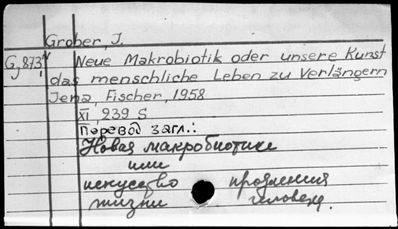 Grober, J.
G 873 Neue Makrobiotik oder unsere Kunst
das menschliche Leben zu Verlängern
Jena, Fischer, 1958
XI, 239 S
Перевод загл.:
Новая макробиотика
или
искусство продления
жизни человека.